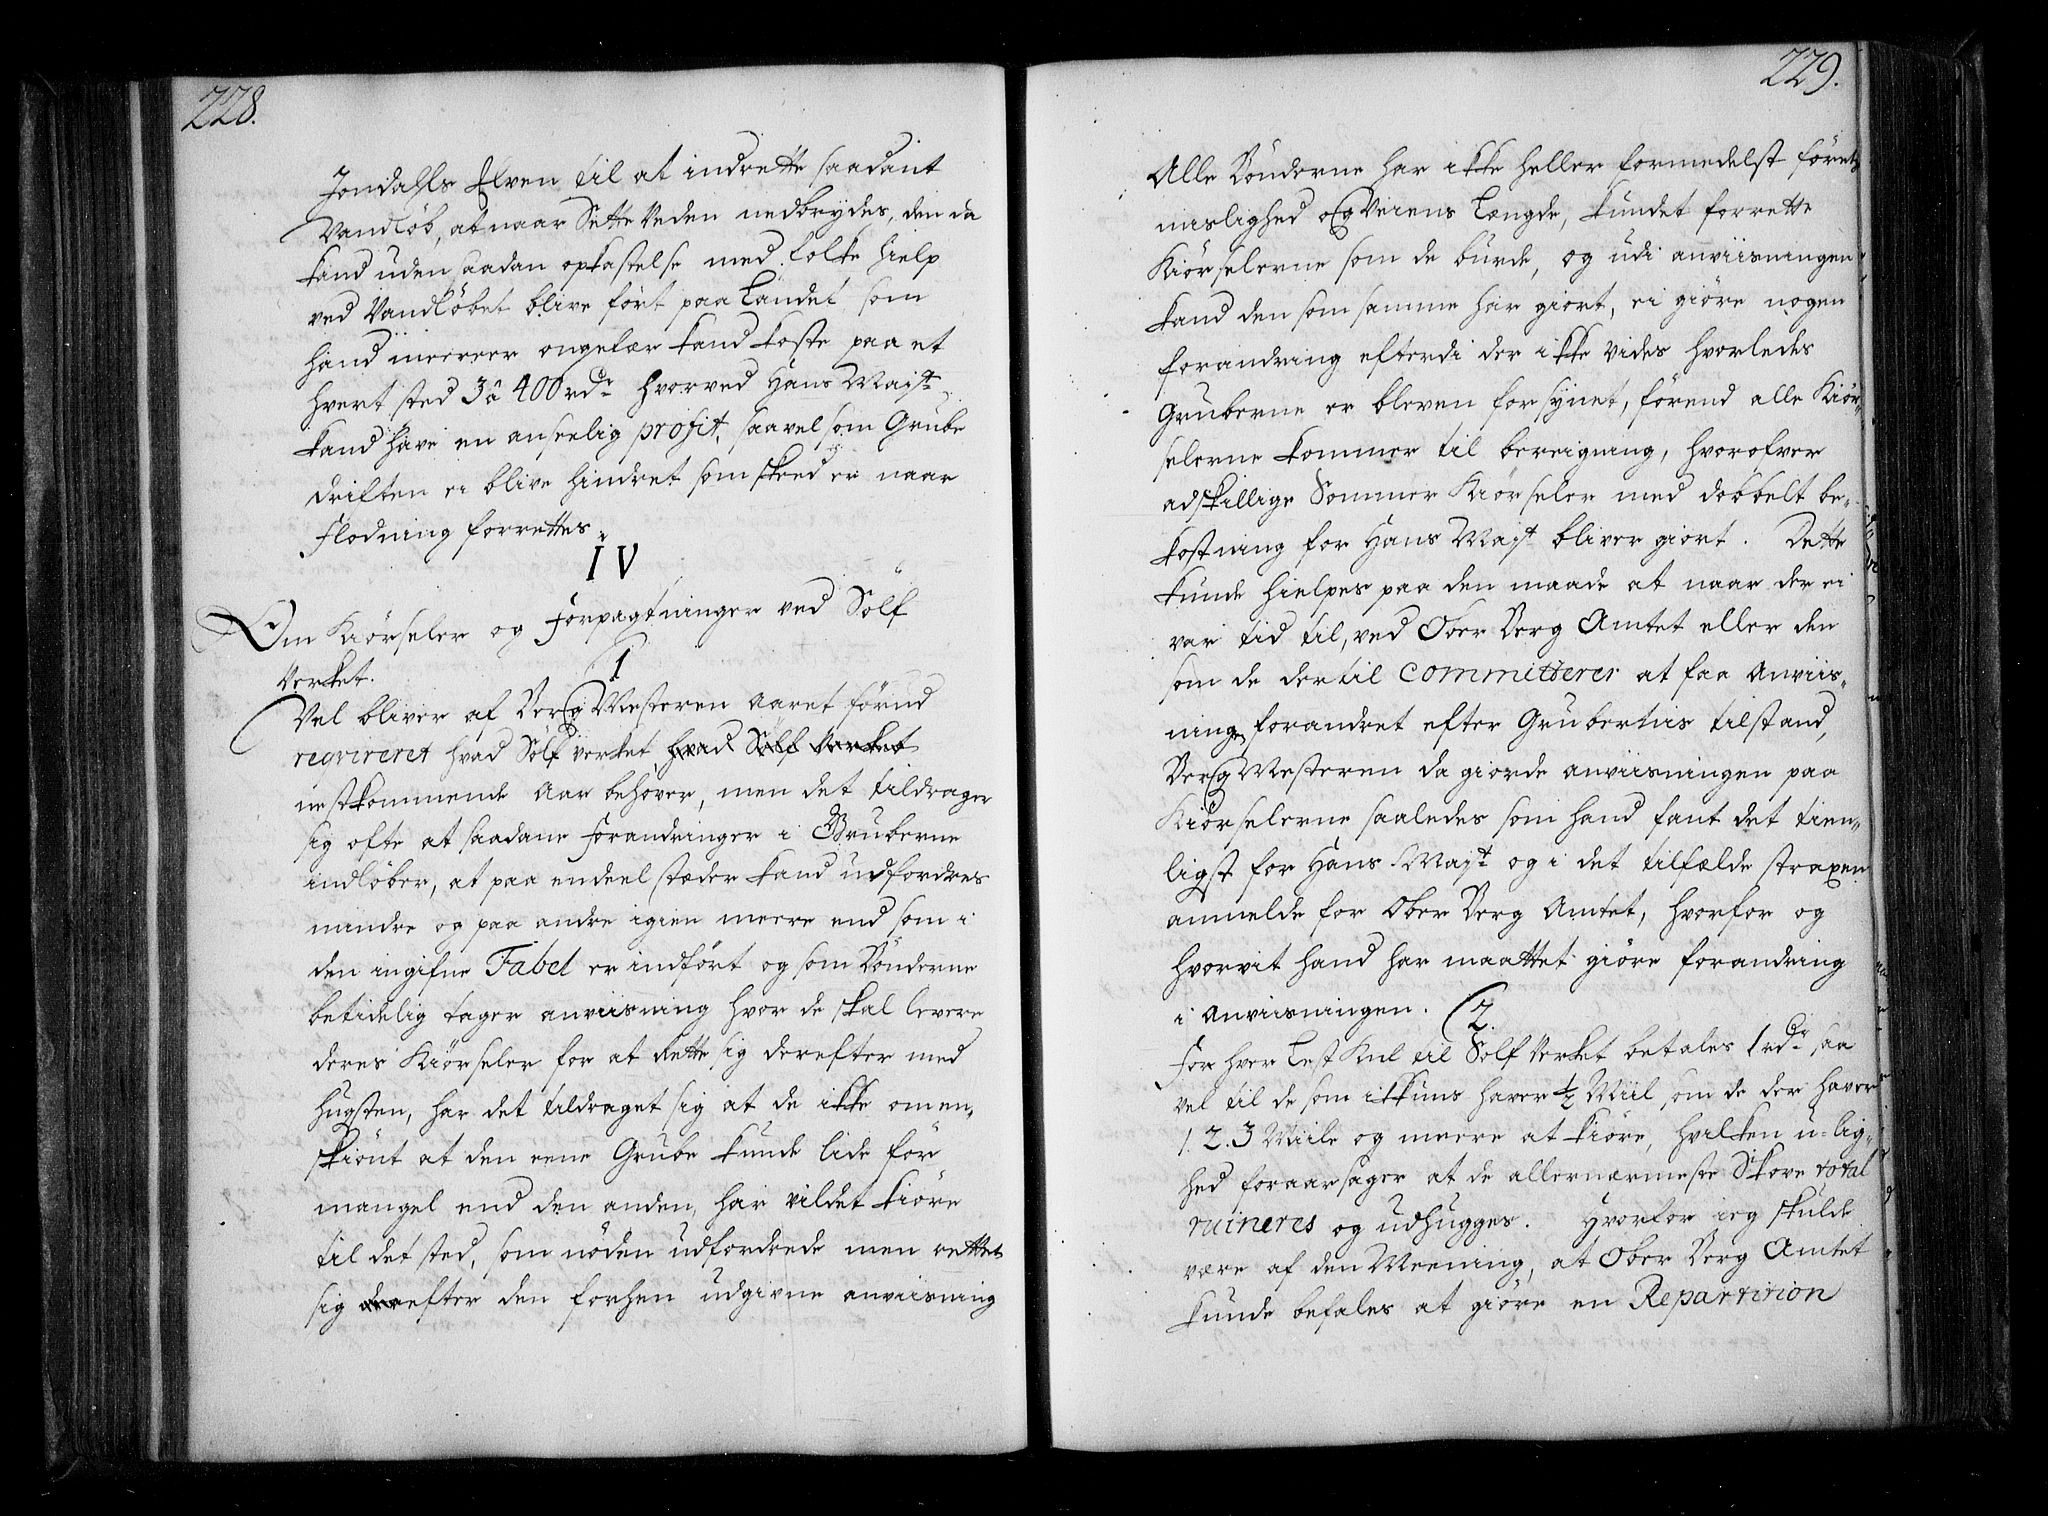 228.
Jondahls Elven til at indrette saadant
Vandløb, at naar Sette Veden nedbrydes, den da
kand uden saadan opkastelse med folke hielp
ved Vandløbet blive ført paa Landet, som
hand meener ongefær kand koste paa et
hvert sted 3 â 400 rdr hvorved Hans Majt
kand have en anseelig profit, saavel som Grube
driften ei blive hindret som skeed er naar
Flodning forrettes.
IV
Om Kiørseler og Forpagtninger ved Sølf
Verket.
1
Vel bliver af Berg Mesteren Aaret forud
reqvireret hvad Sølf verket hvad Sølf Verket
nestkommende Aar behøver, men det tildrager
sig ofte at saadane Forandringer i Gruberne
indløber, at paa endeel stæder kand udfordres
mindre og paa andre igien meere end som i
den ingifne Tabel er indført og som Bønderne
betidelig tager anviisning hvor de skal levere
deres Kiørseler for at rette sig derefter med
hugsten, har det tildraget sig at de ikke omen-
skiønt at den eene Grube kunde lide før
mangel end den anden, har vildet kiøre
til det sted, som nøden udfordrede men rettet
sig der efter den forhen udgivne anviisning
229.
Alle Bønderne har ikke heller formedelst førets
mislighed og Veiens Længde, kundet forrette
Kiørselerne som de burde, og udi anviisningen
kand den som samme har giort, ei giøre nogen
forandring efterdi der ikke vides hvorledes
Gruberne er bleven forsynet, førend alle Kiør-
selerne kommer til bereigning, hvorofver
adskillige Sommer Kiørseler med dobbelt be-
kostning for Hans Majt bliver giort. Dette
kunde hielpes paa den maade at naar der ei
var tid til, ved Ober Berg Amtet eller den
som de dertil committerer at faa Anviis-
ninge forandret efter Grubernis tilstand,
Berg Mesteren da giorde anviisningen paa
Kiørselerne saaledes som hand fant det tien-
ligst for Hans Majt og i det tilfælde straxen
anmelde for Ober Berg Amtet, hvorfor og
hvorvit hand har maattet giøre forandring
i Anviisningen.
2.
For hver Lest Kul til Sølf Verket betales 1 rdr saa
vel til de som ikkuns haver ½ Miil som de der haver
1. 2. 3 Miile og meere at kiøre, hvilken u-lig-
hed foraarsager at de allernærmeste Skove total
ruineres og udhugges. Hvorfor ieg skulde
være af den Meening, at Ober Berg Amtet
kunde befales at giøre en Repartition